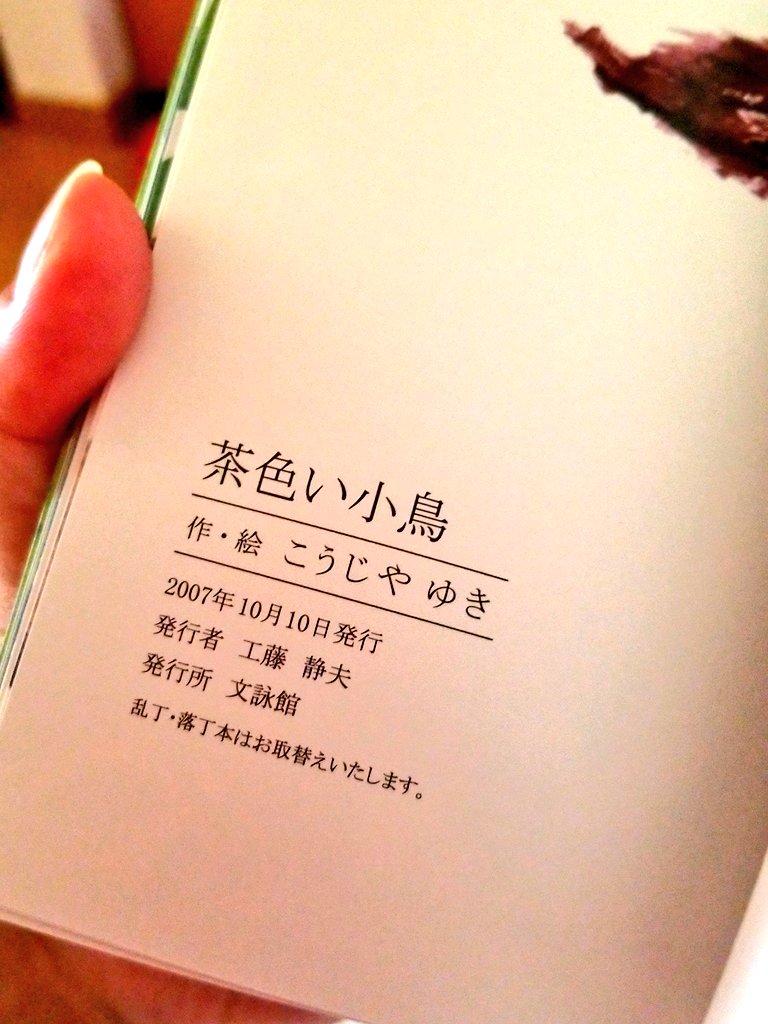 茶色い小鳥
作・絵 こうじや ゆき
2007年10月10日発行
発行者 工藤 静夫
発行所 文詠館
乱丁・落丁本はお取替えいたします。